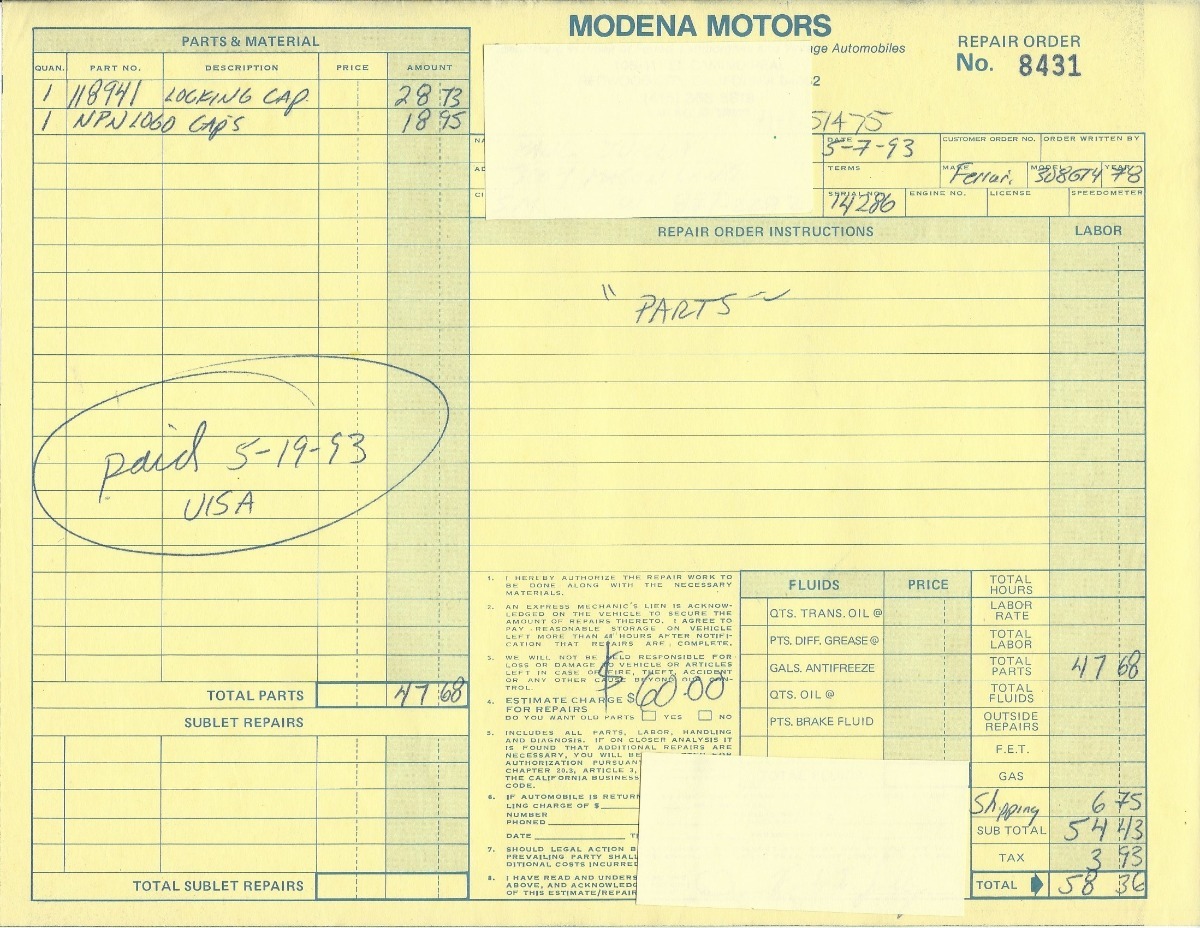 MODENA MOTORS
ge Automobiles
2
51475
REPAIR ORDER
No. 8431
PARTS & MATERIAL
QUAN. PART NO. DESCRIPTION PRICE AMOUNT
1 118941 LOCKING CAP. 28 73
1 NPN LOGO CAPS 18 95
DATE 5-7-93 CUSTOMER ORDER NO. ORDER WRITTEN BY
TERMS MAKE Ferrari MODEL 308GT4 YEAR 78
SERIAL NO. 14286 ENGINE NO. LICENSE SPEEDOMETER
REPAIR ORDER INSTRUCTIONS LABOR
" PARTS ~
paid 5-19-93
VISA
TOTAL PARTS 47 68
SUBLET REPAIRS
TOTAL SUBLET REPAIRS
1. I HEREBY AUTHORIZE THE REPAIR WORK TO
BE DONE ALONG WITH THE NECESSARY
MATERIALS.
2. AN EXPRESS MECHANIC'S LIEN IS ACKNOW-
LEDGED ON THE VEHICLE TO SECURE THE
AMOUNT OF REPAIRS THERETO. I AGREE TO
PAY REASONABLE STORAGE ON VEHICLE
LEFT MORE THAN 48 HOURS AFTER NOTIFI-
CATION THAT REPAIRS ARE COMPLETE.
3. WE WILL NOT BE HELD RESPONSIBLE FOR
LOSS OR DAMAGE TO VEHICLE OR ARTICLES
LEFT IN CASE OF FIRE, THEFT, ACCIDENT
OR ANY OTHER CAUSE BEYOND OUR CON-
TROL.
4. ESTIMATE CHARGE $
FOR REPAIRS
$60.00
DO YOU WANT OLD PARTS YES NO
5. INCLUDES ALL PARTS, LABOR, HANDLING
AND DIAGNOSIS. IF ON CLOSER ANALYSIS IT
IS FOUND THAT ADDITIONAL REPAIRS ARE
NECESSARY, YOU WILL BE
AUTHORIZATION PURSUANT
CHAPTER 20.3, ARTICLE 3,
THE CALIFORNIA BUSINESS
CODE.
6. IF AUTOMOBILE IS RETURN
LING CHARGE OF $
NUMBER
PHONED
DATE TI
7. SHOULD LEGAL ACTION B
PREVAILING PARTY SHALL
DITIONAL COSTS INCURRED
8. I HAVE READ AND UNDERS
ABOVE, AND ACKNOWLEDG
OF THIS ESTIMATE/REPAIR
FLUIDS PRICE
QTS. TRANS. OIL @
PTS. DIFF. GREASE @
GALS. ANTIFREEZE
QTS. OIL @
PTS. BRAKE FLUID
TOTAL HOURS
LABOR RATE
TOTAL LABOR
TOTAL PARTS 47 68
TOTAL FLUIDS
OUTSIDE REPAIRS
F.E.T.
GAS
Shipping 6 75
SUB TOTAL 54 43
TAX 3 93
TOTAL 58 36